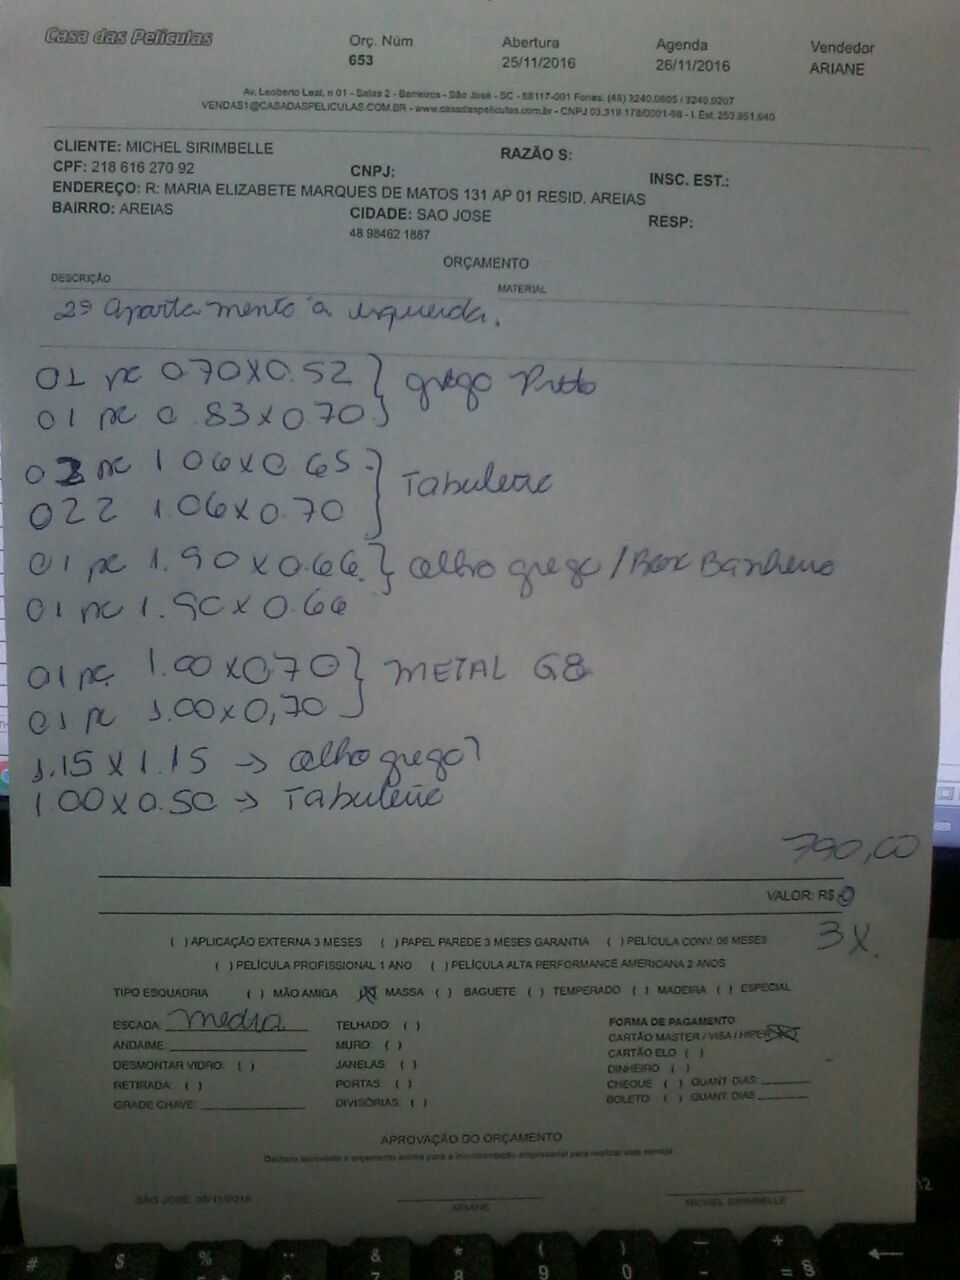 Casa das Películas
Orç. Núm Abertura Agenda Vendedor
653 25/11/2016 26/11/2016 ARIANE
Av. Leoberto Leal, n 01 - Salas 2 - Barreiros - São José - SC - 88117-001 Fones: (48) 3240.0605 / 3240.0207
VENDAS1@CASADASPELICULAS.COM.BR - www.casadaspeliculas.com.br - CNPJ 03.319.178/0001-98 - I. Est. 253.951.640
CLIENTE: MICHEL SIRIMBELLE RAZÃO S:
CPF: 218 616 270 92 CNPJ: INSC. EST.:
ENDEREÇO: R: MARIA ELIZABETE MARQUES DE MATOS 131 AP 01 RESID. AREIAS
BAIRRO: AREIAS CIDADE: SAO JOSE RESP:
48 98462 1887
ORÇAMENTO
DESCRIÇÃO MATERIAL
2º apartamento à esquerda.
01 pc 070X0.52 } grego Preto
01 pc 0.83X0.70
02 pc 1 06X0.65 } Tabuleiro
022 1.06X0.70
01 pc 1.90X0.66 } olho grego / Box Banheiro
01 pc 1.90X0.66
01 pc 1.00X0,70 } METAL G8
01 pc 1.00X0,70
1.15 X 1.15 → olho grego?
1.00 X 0.50 → Tabuleiro
790,00
VALOR: R$ 0
3X.
( ) APLICAÇÃO EXTERNA 3 MESES ( ) PAPEL PAREDE 3 MESES GARANTIA ( ) PELÍCULA CONV. 06 MESES
( ) PELÍCULA PROFISSIONAL 1 ANO ( ) PELÍCULA ALTA PERFORMANCE AMERICANA 2 ANOS
TIPO ESQUADRIA ( ) MÃO AMIGA (X) MASSA ( ) BAGUETE ( ) TEMPERADO ( ) MADEIRA ( ) ESPECIAL
ESCADA: media TELHADO ( ) FORMA DE PAGAMENTO
ANDAIME: MURO: ( ) CARTÃO MASTER / VISA / HIPER (X)
DESMONTAR VIDRO: ( ) JANELAS: ( ) CARTÃO ELO ( )
RETIRADA: ( ) PORTAS: ( ) DINHEIRO ( )
GRADE CHAVE: DIVISÓRIAS: ( ) CHEQUE ( ) QUANT DIAS
BOLETO ( ) QUANT DIAS
APROVAÇÃO DO ORÇAMENTO
SAO JOSÉ, 25/11/2016 ARIANE MICHEL SIRIMBELLE